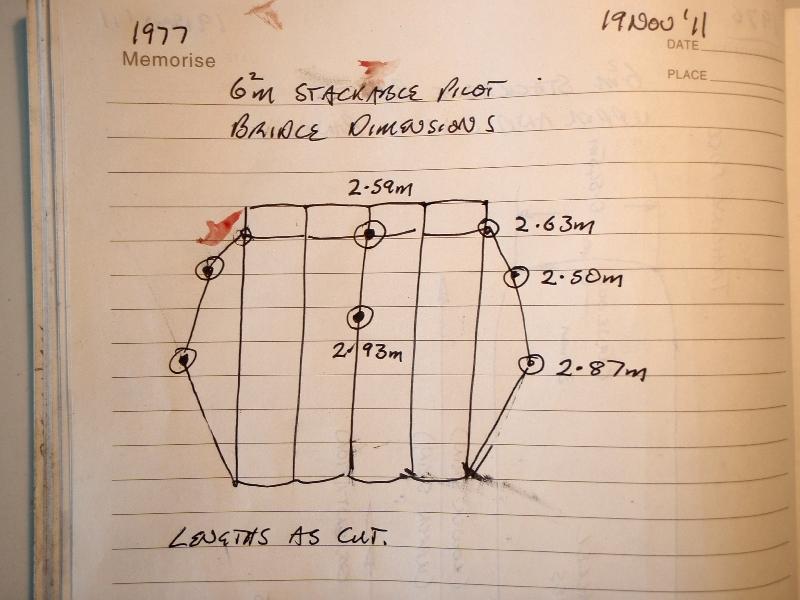 1977
19 Nov '11
Memorise
DATE
PLACE
6²m STACKABLE PILOT
BRIDLE DIMENSIONS
2.59m
2.63m
2.50m
2.93m
2.87m
LENGTHS AS CUT.